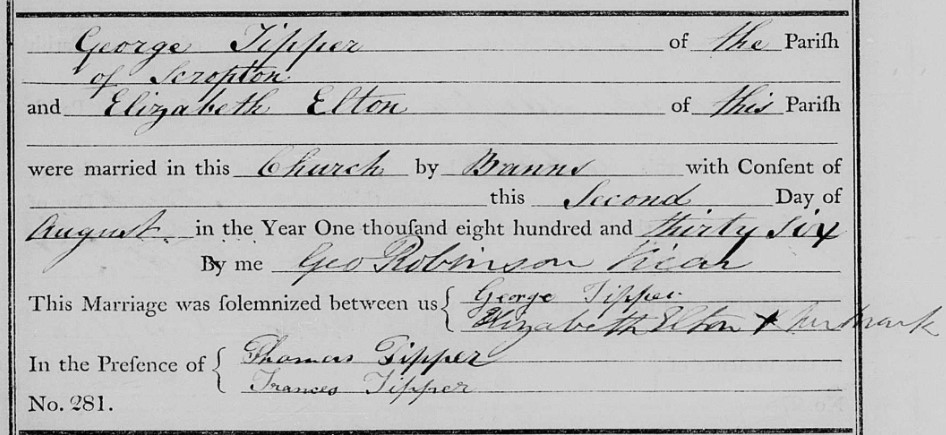 George Tipper of the Pariſh
of Scropton
and Elizabeth Elton of this Pariſh
were married in this Church by Banns with Conſent of
this Second Day of
August in the Year One thouſand eight hundred and thirty six
By me Geo Robinson Vicar
This Marriage was ſolemnized between us { George Tipper
Elizabeth Elton X her Mark
In the Preſence of { Thomas Tipper
Frances Tipper
No. 281.